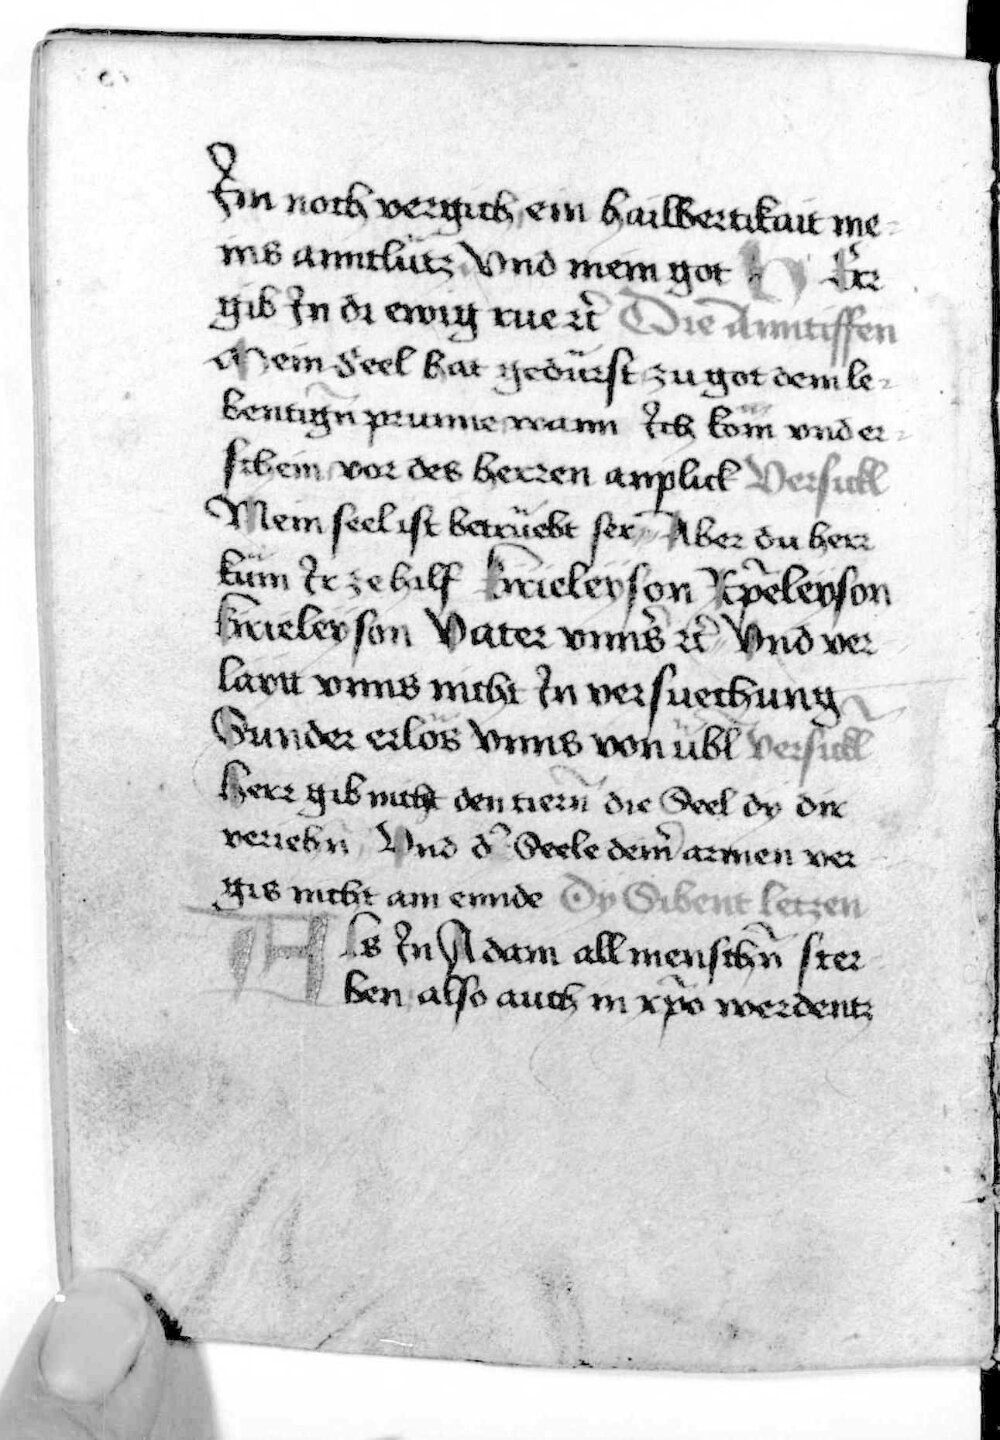 Im noch vergich ein hailbertikait me-
ins anntlütz Vnd mein got Herr
gib In di ewig rue rc̃ Die Anntiffen
Mein Seel hat gedürst zu got dem le-
bentign̄ prunne wann Ich köm vnd er-
schein vor des herren anplick Versickl
Mein seel ist betrüebt ser Aber du herr
küm Ir ze hilf kirieleyson Xp̄eleyson
kirieleyson Vater vnns̄ rc̃ Vnd ver
laytt vnns nicht In versuechung
Sunder erlös vnns von übl versickl
herr gib nicht den tiern̄ die Seel dy dir
veriehn̄ Vnd d̄ Seele dem̄ armen ver
gis nicht am ennde Dy Sibent letzen
Als In Adam all menschn̄ ster
ben also auch in xp̄o werdentz